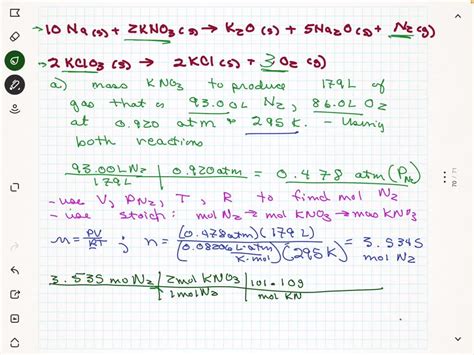 → 10 Na(s) + 2KNO₃(s) → K₂O(s) + 5Na₂O(s) + N₂(g)
→ 2 KClO₃(s) → 2KCl(s) + 3O₂(g)
a) mass KNO₃ to produce 179L of
gas that is 93.00L N₂, 86.0L O₂
at 0.920 atm & 295K. - Using
both reactions
93.00L N₂ | 0.920 atm = 0.478 atm (P_N₂)
179L
- use V, P_N₂, T, R to find mol N₂
- use stoich: mol N₂ → mol KNO₃ → mass KNO₃
n = PV/RT ; n = (0.478atm)(179L) / (0.08206 L·atm/K·mol)(295K) = 3.5345 mol N₂
3.535 mol N₂ | 2mol KNO₃ | 101.10g
1molN₂ | mol KN